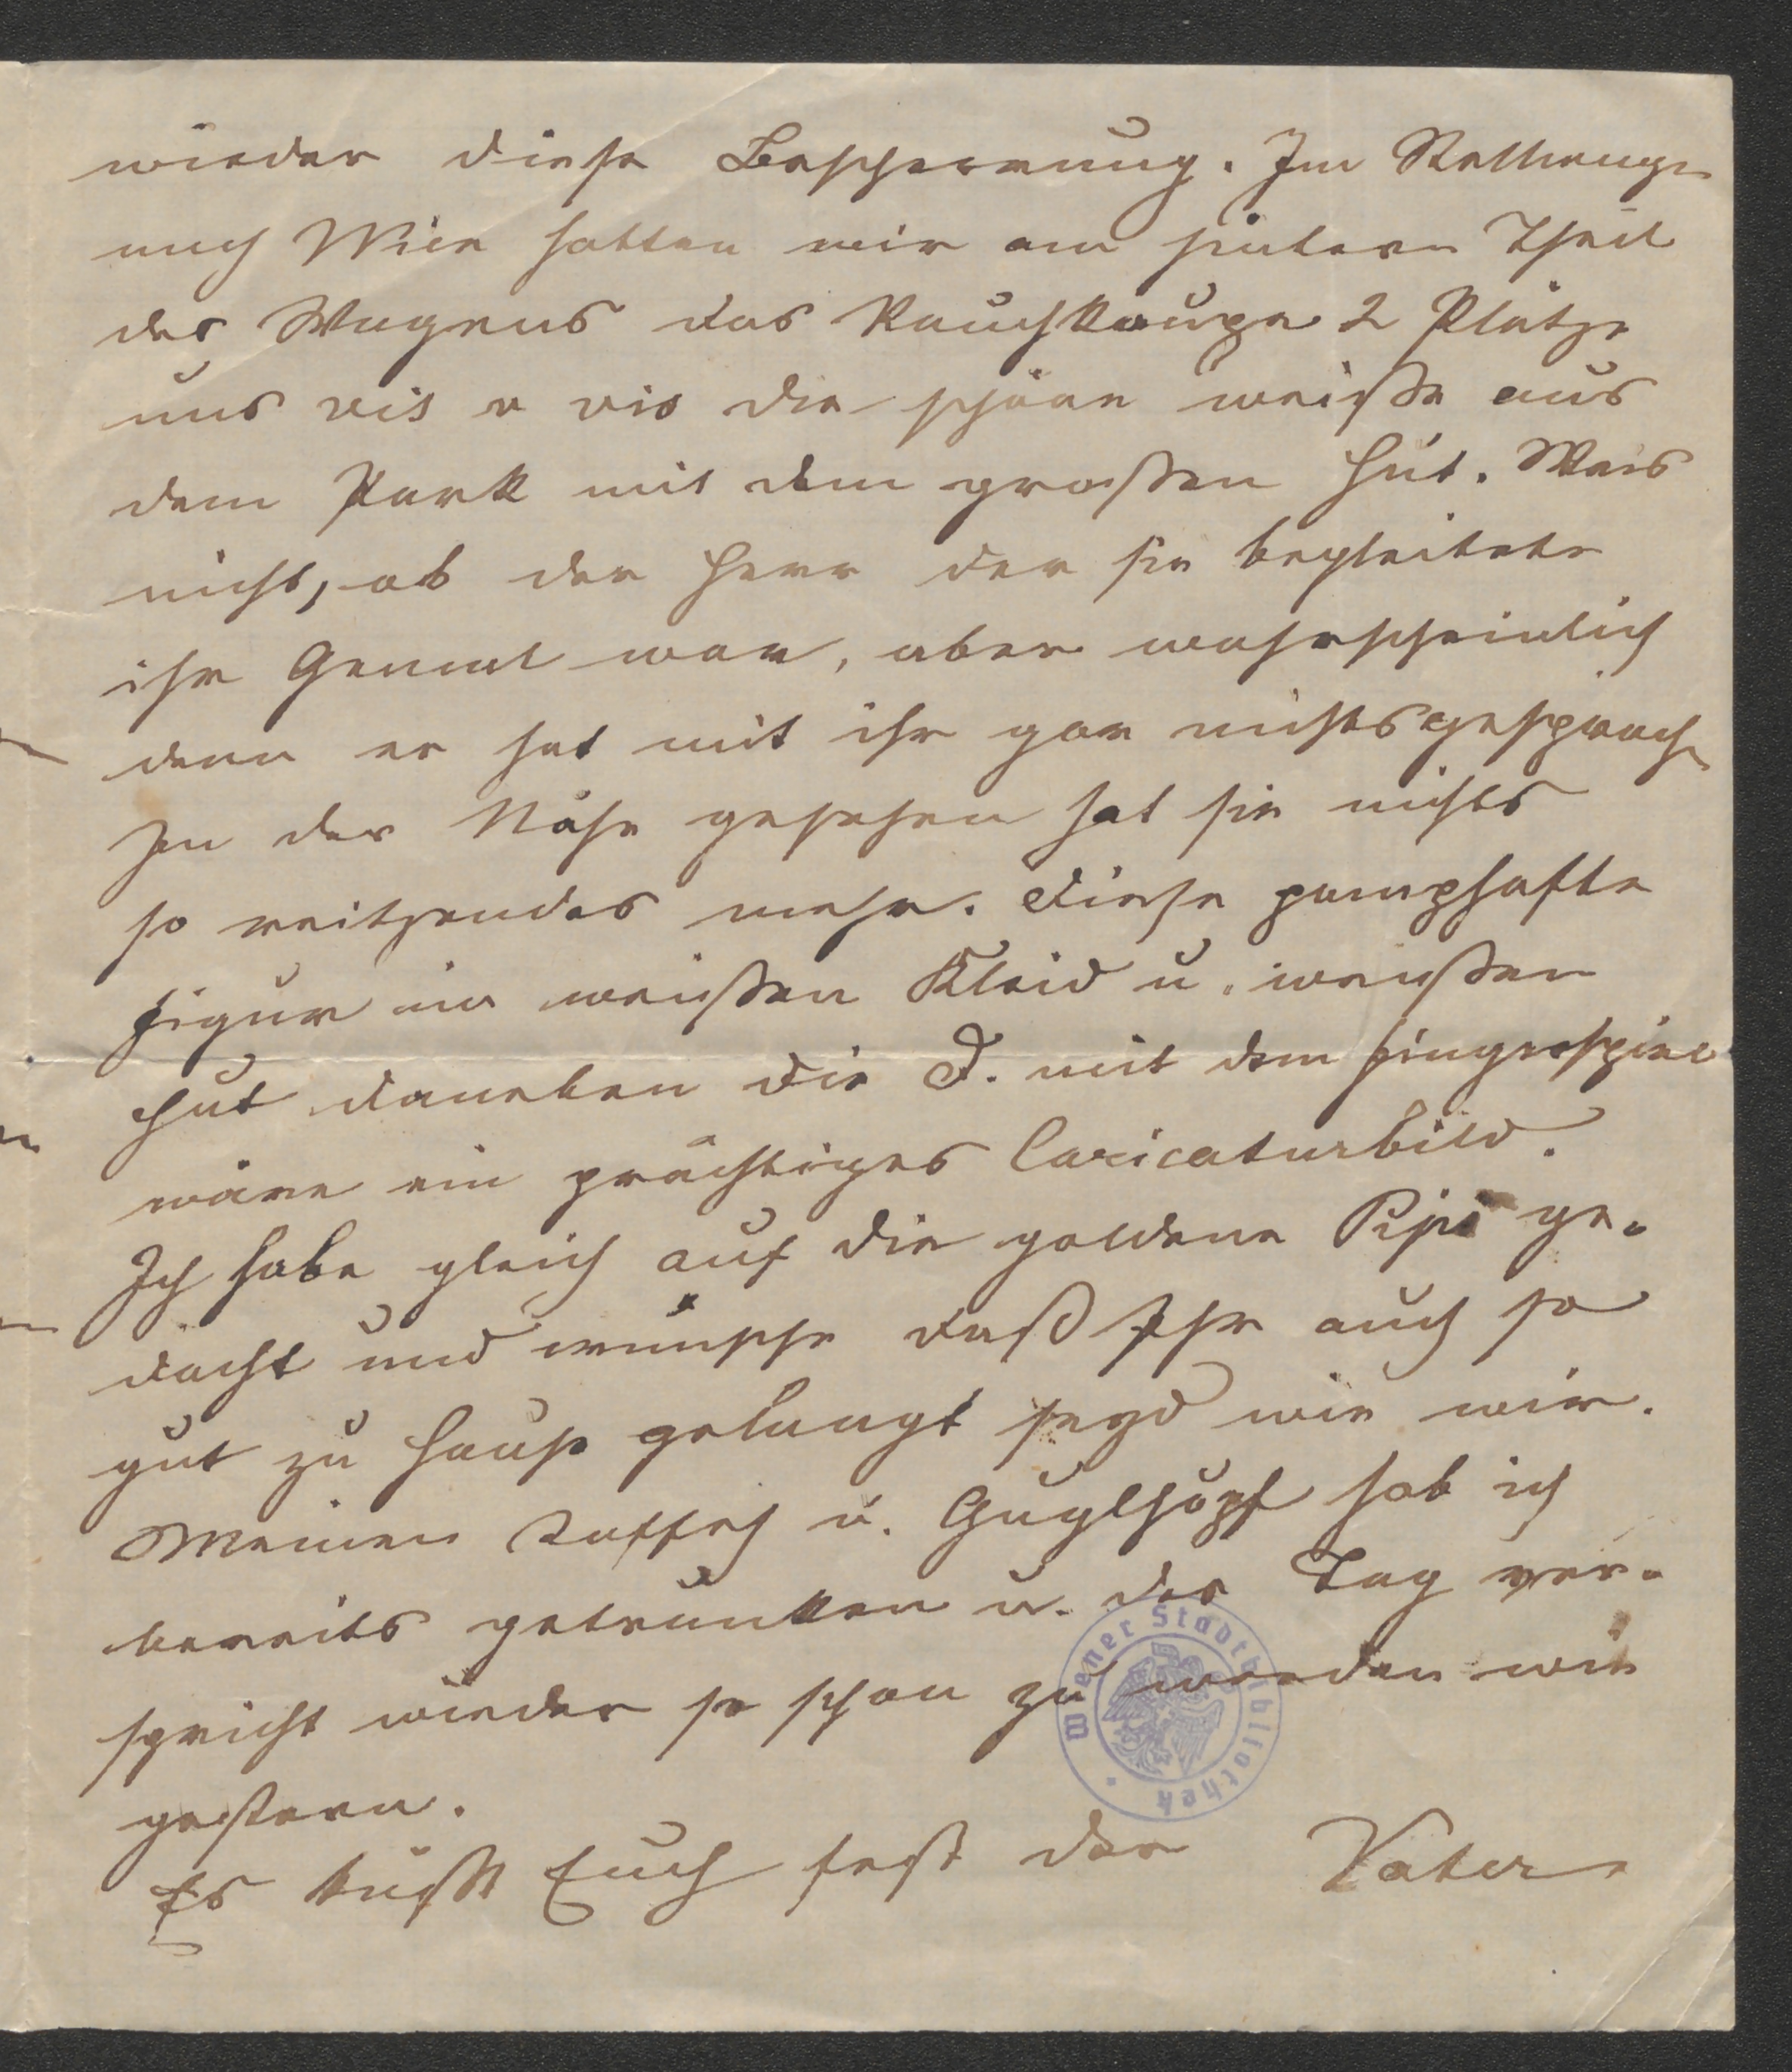 wieder diese Bescherrung. Im
nach Wien hatten wir am hintern Theil
des Wagens das Rauchkoupe 2 Plätze
uns vis a vis die schöne weiße aus
dem Park mit dem großen Hut. Weis
nicht, ob der Herr der sie begleitete
ihr Gemal war, aber wahrscheinlich
denn er hat mit ihr gar nichts gesproch
In der Nähe gesehen hat sie nichts
so reitzendes mehr. Diese pomphafte
Figur im weißen Kleid u. weißen
Hut daneben die D. mit dem Fingerspiel
wäre ein prächtiges Caricaturbild.
Ich habe gleich auf die goldene Pipi ge-
dacht und wünsche daß Ihr auch so
gut zu Hause gelangt seyd wie wir.
Meinen Kaffeh u. Guglhupf hab ich
bereits getrunken u. der Tag ver-
spricht wieder so schön zu werden wie
gestern.
Es küßt Euch fest der Vater
Wiener Stadtbibliothek